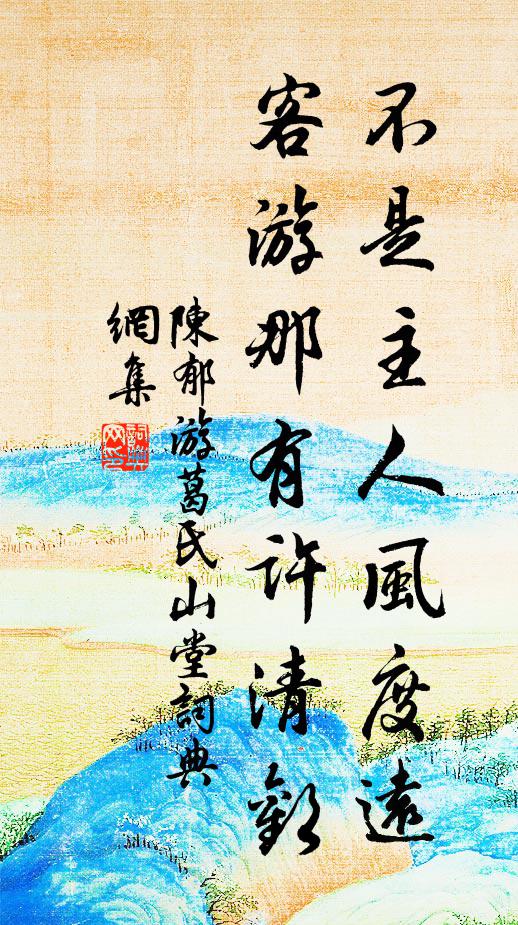 不是主人風度遠
客游那有許清歡
陳郁游葛氏山堂詞典
網集